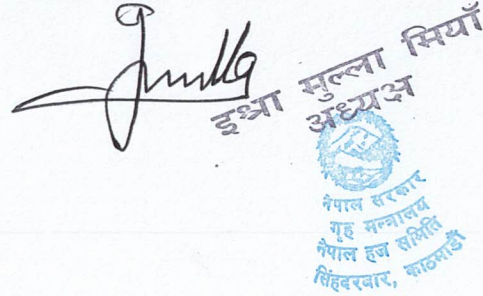 इश्रा मुल्ला मियाँ
अध्यक्ष
नेपाल सरकार
गृह मन्त्रालय
नेपाल हज समिति
सिंहदरबार, काठमाडौं